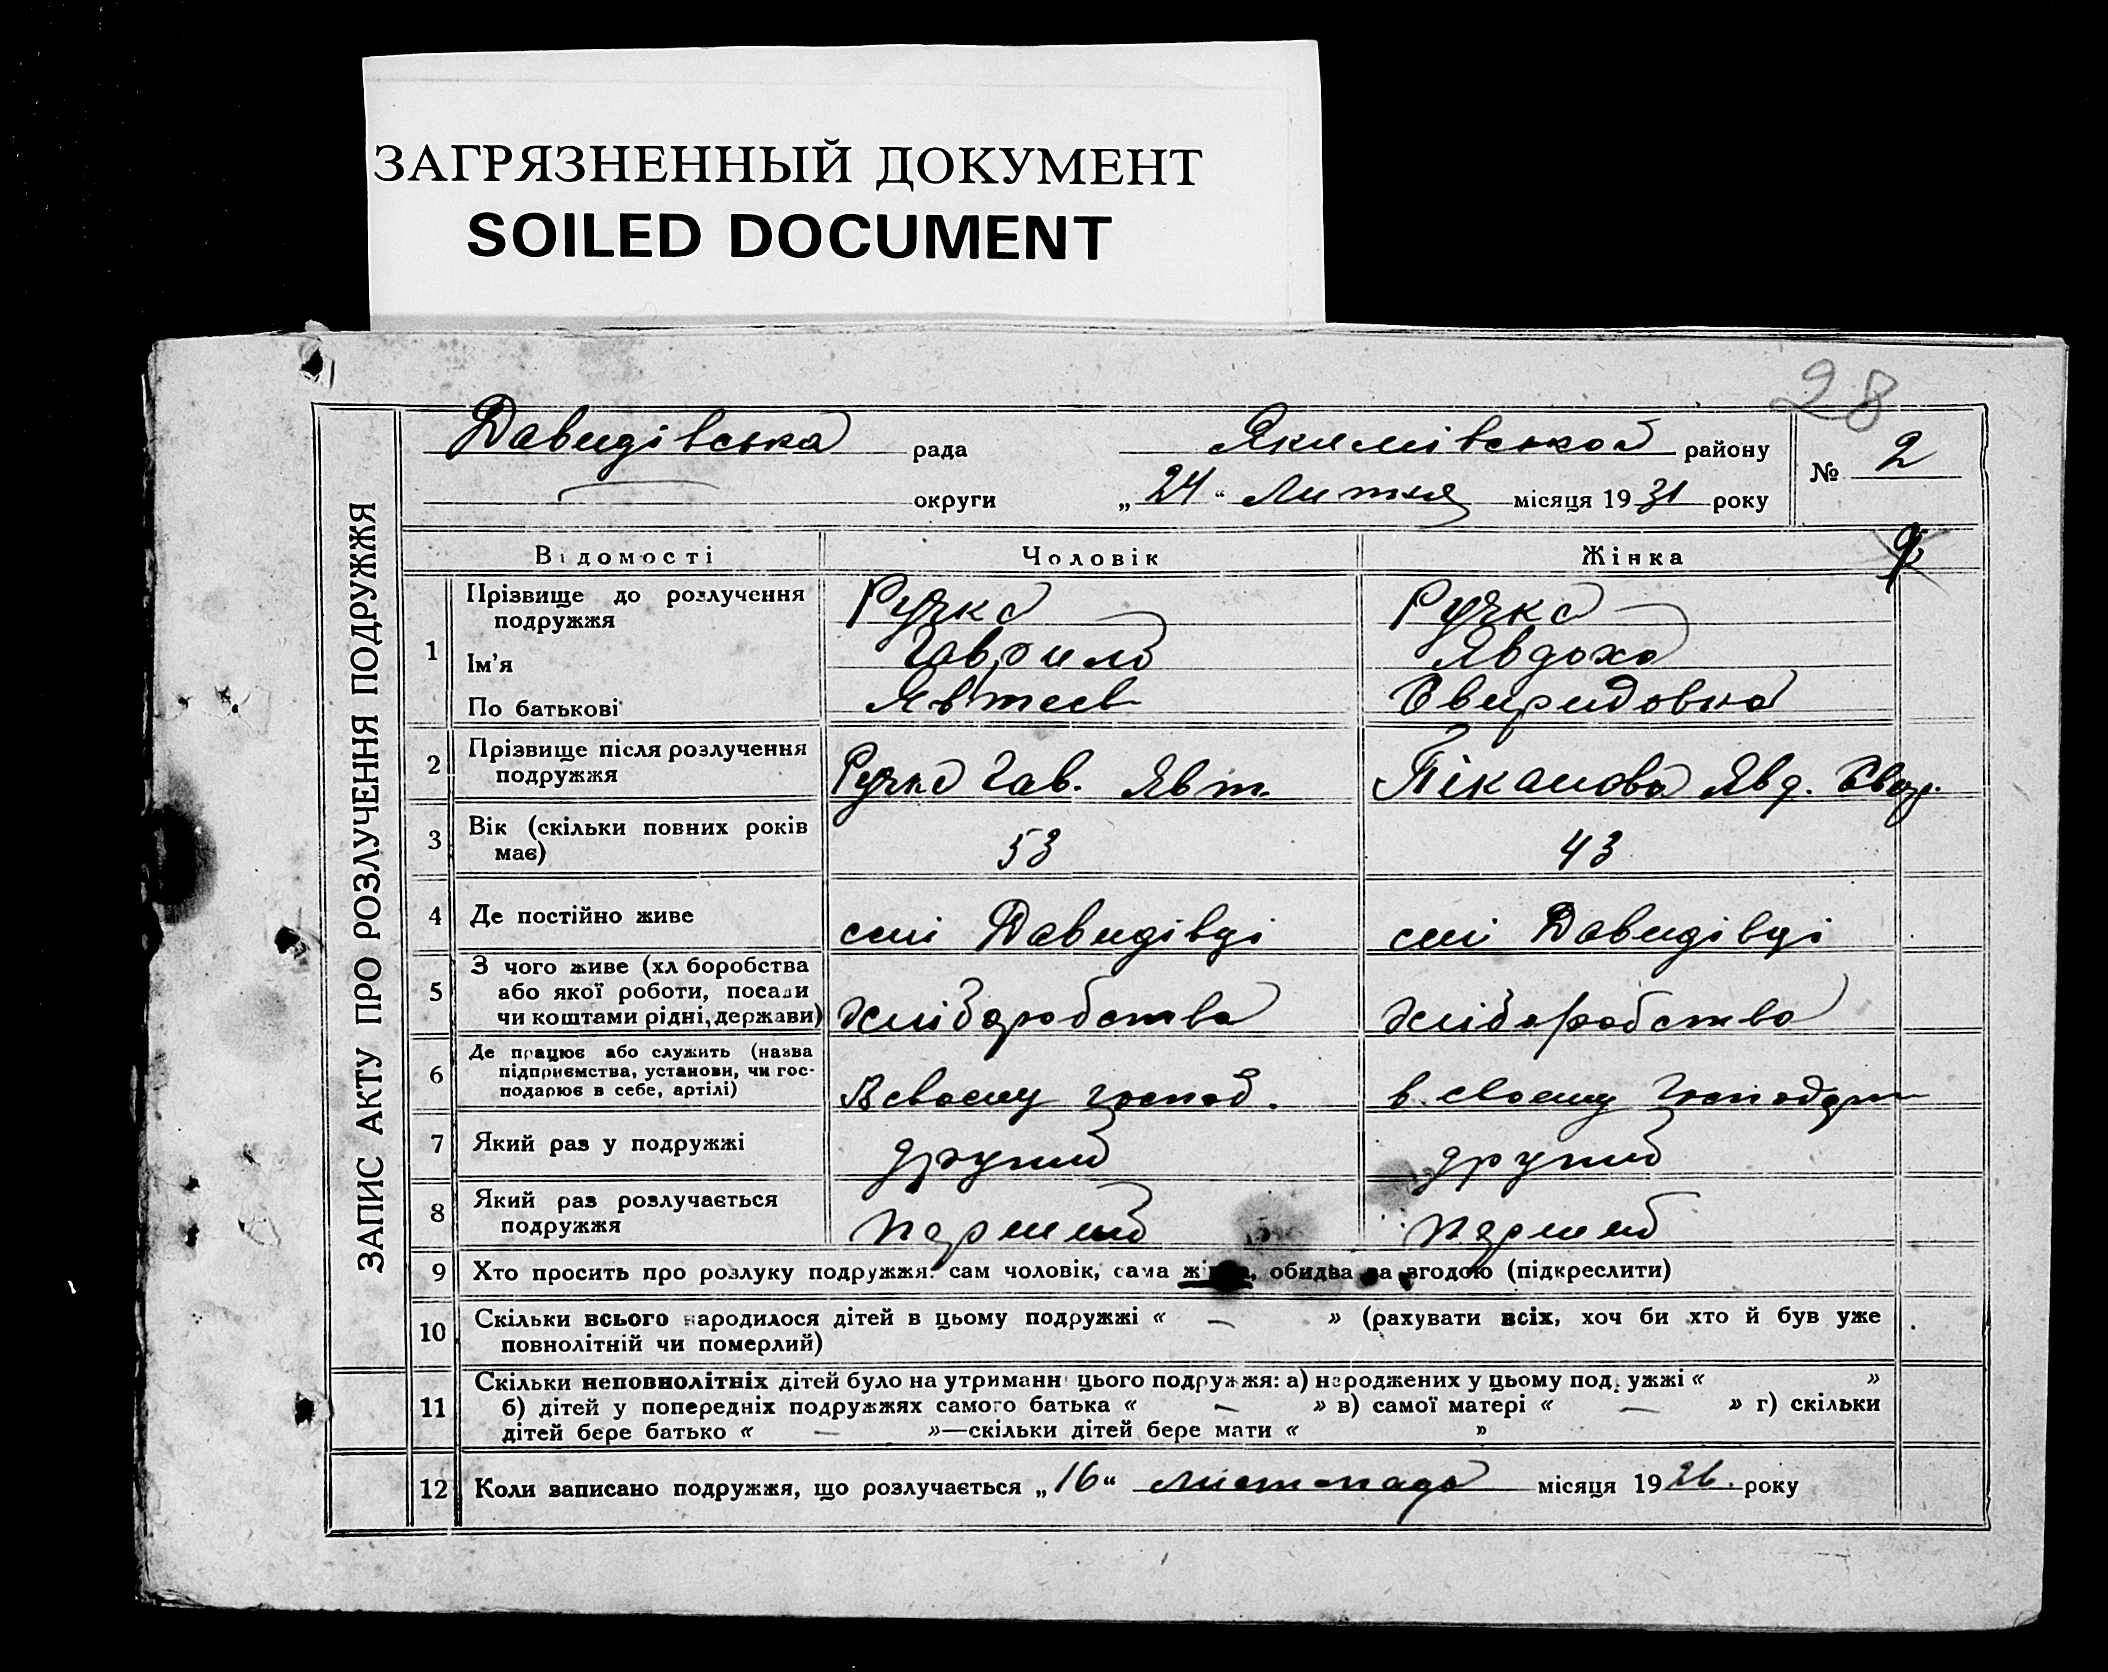 ЗАГРЯЗНЕННЫЙ ДОКУМЕНТ
SOILED DOCUMENT
28
ЗАПИС АКТУ ПРО РОЗЛУЧЕННЯ ПОДРУЖЖЯ
Давидівська рада Якимівськой району
№ 2
округи „24“ Лютня місяця 1931 року
Відомості Чоловік Жінка
1 Прізвище до розлучення подружжя Ручка Ручка
Ім’я Гаврило Явдоха
По батькові Явтеев Свиридовна
2 Прізвище після розлучення
подружжя
Ручка Гав. Явт. Піканова Явд. Свир.
3 Вік (скільки повних років
має)
53 43
4 Де постійно живе селі Давидівці селі Давидівці
5 З чого живе (хліборобства
або якої роботи, посади
чи коштами рідні, держави)
хліборобства хліборобства
6 Де працює або служить (назва
підприємства, установи, чи гос-
подарює в себе, артілі)
В своєму господ. в своєму господар
7 Який раз у подружжі другий другий
8 Який раз розлучається
подружжя
перший перший
9 Хто просить про розлуку подружжя: сам чоловік, сама жінка, обидва за згодою (підкреслити)
10 Скільки всього народилося дітей в цьому подружжі « — » (рахувати всіх, хоч би хто й був уже
повнолітній чи померлий)
11 Скільки неповнолітніх дітей було на утриманні цього подружжя: а) народжених у цьому подружжі « »
б) дітей у попередніх подружжях самого батька « — » в) самої матері « — » г) скільки
дітей бере батько « — »—скільки дітей бере мати « »
12 Коли записано подружжя, що розлучається „16“ листопада місяця 1926. року